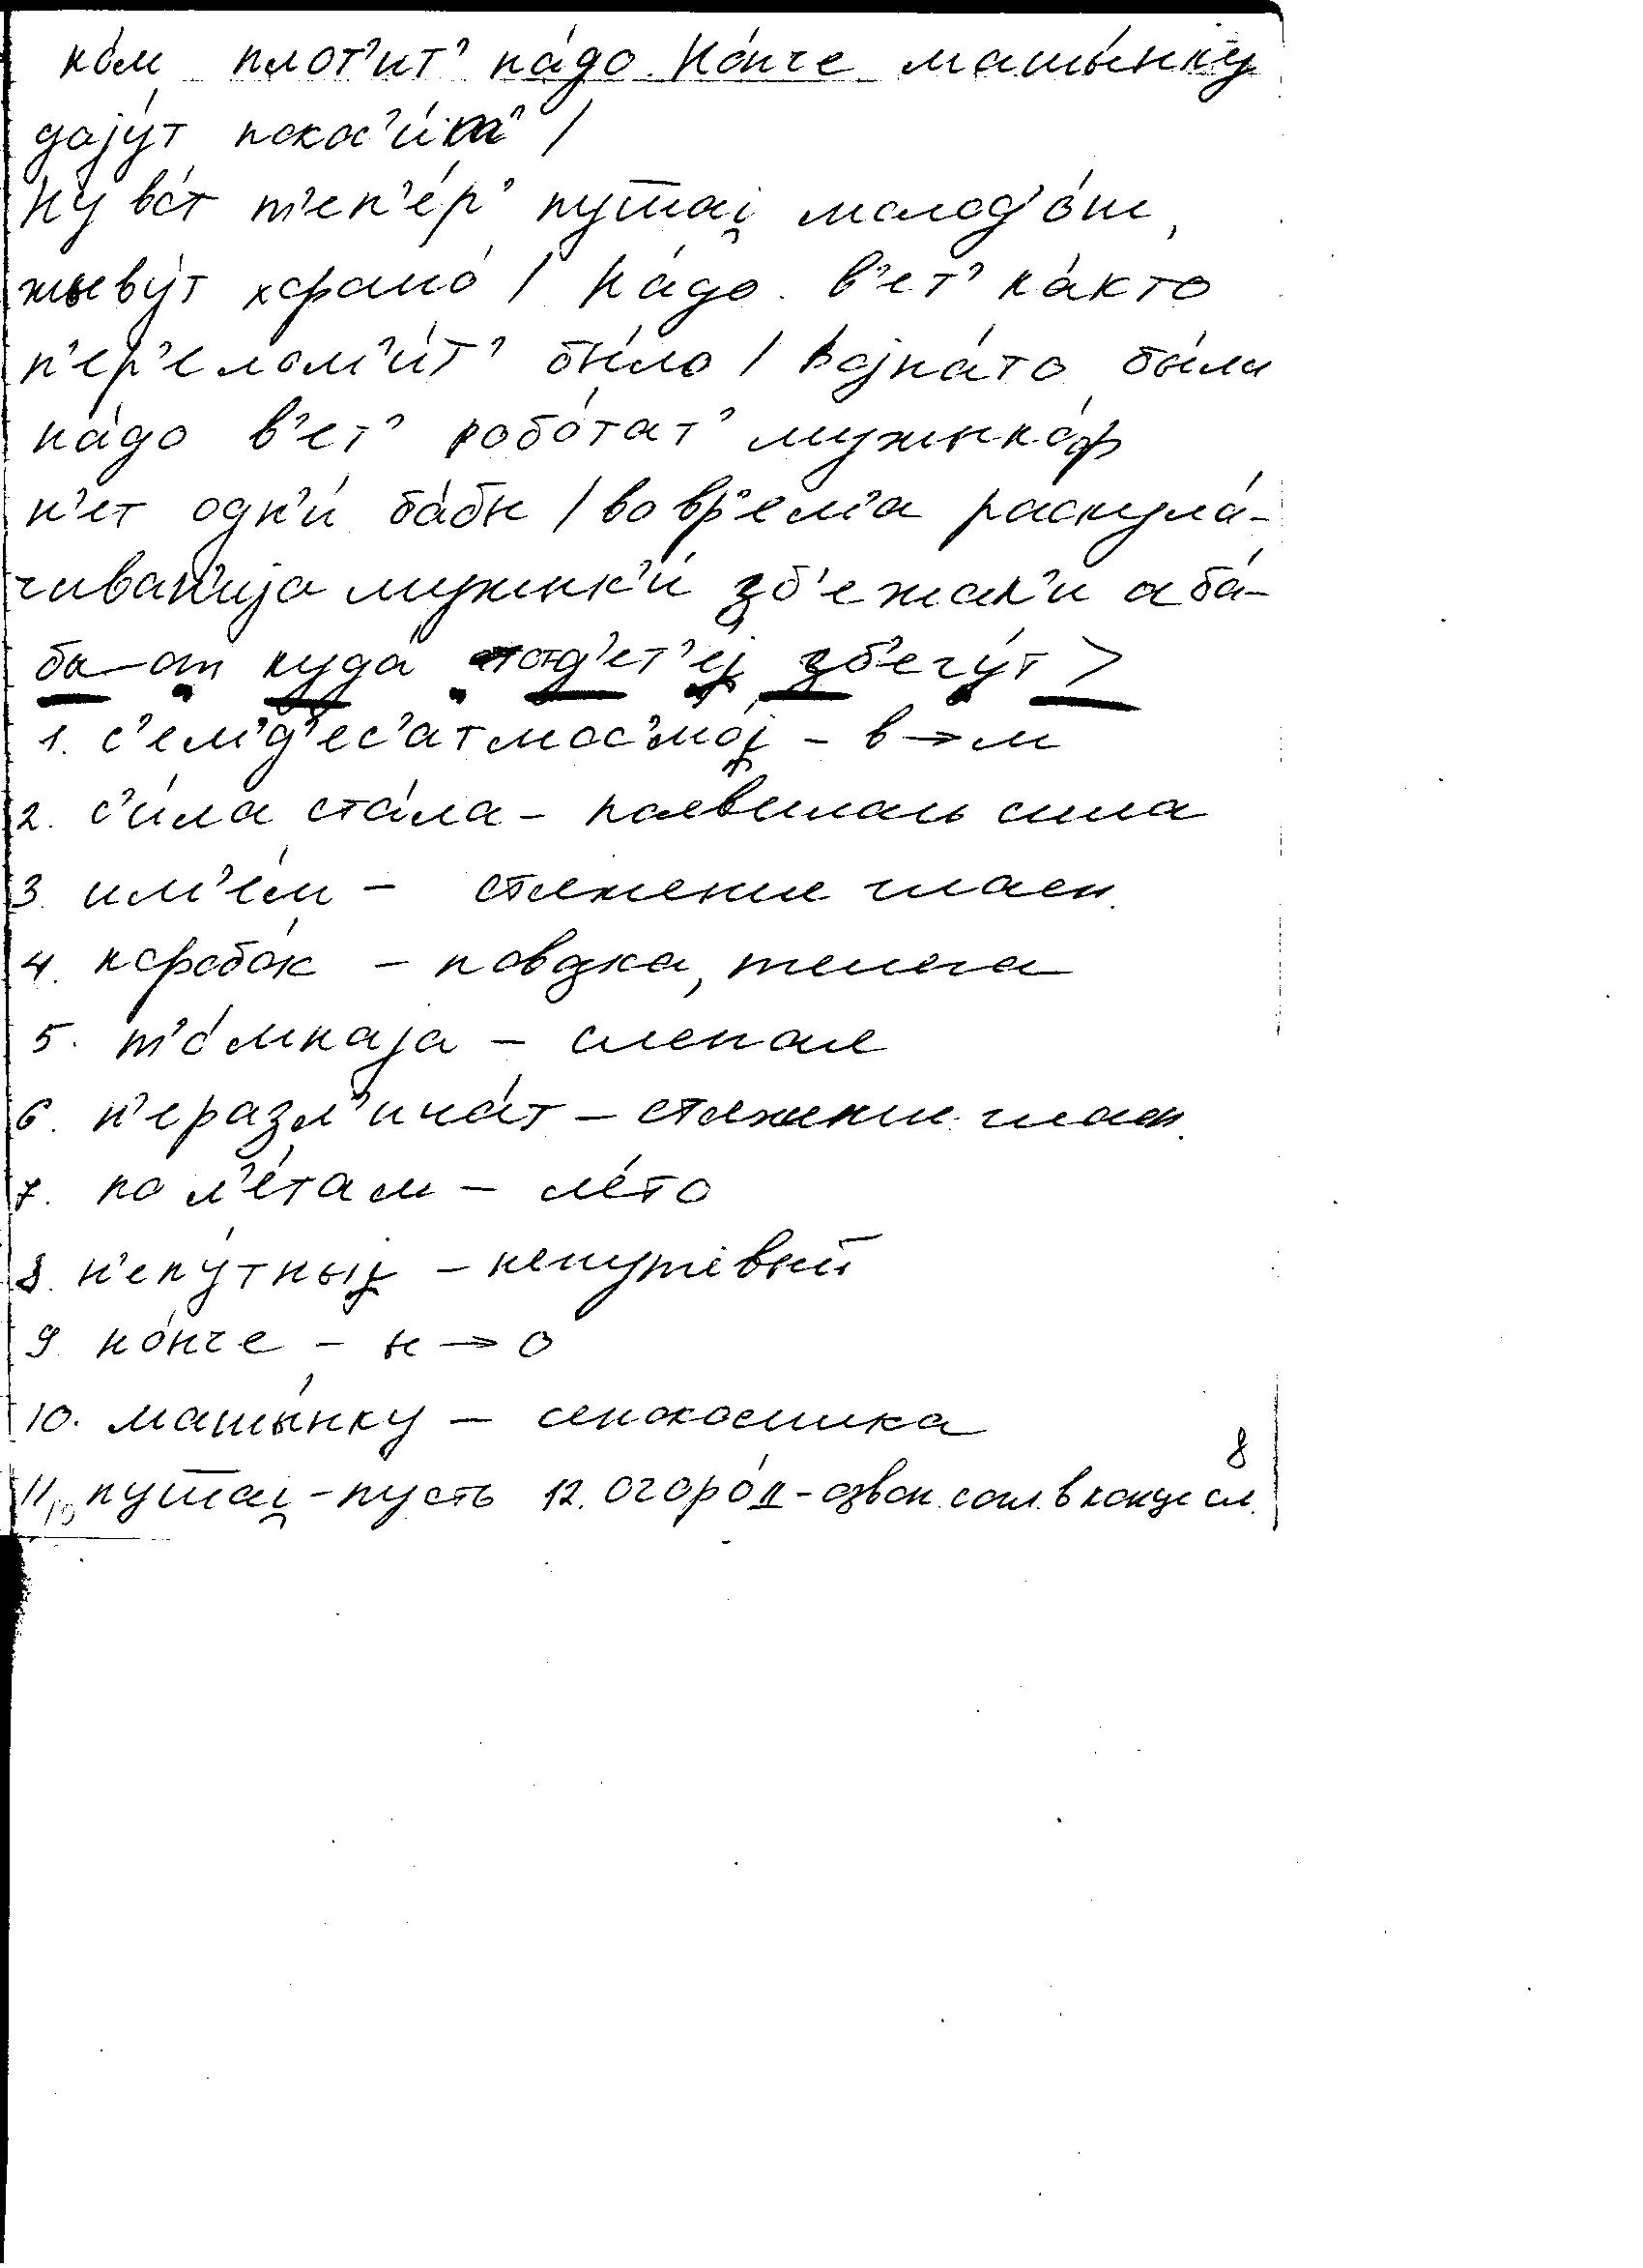 ко́м плот'ит' на́до но́нче машы́нку
дају́т покос'и́т' /
Ну во́т т'еп'е́р' путаį молод'о́ш,
жыву́т хорошо́ / На́до в'ет' ка́кто
п'ер'елом'и́т' бы́ло / војна́то была
на́до в'ет' робо́тат' мужыко́ф
н'ет одн'и́ ба́бы / во вр'ем'а раскула́-
чиван'ија мужык'и́ зб'ежал'и а ба́-
бы-от куда́ отд'ет'еį зб'егу́т >
1. с'ем'д'ес'ат мос'мо́į – в → м
2. с'и́ла ста́ла – появилась сила
3. им'е́м – стяжение гласн.
4. коробо́к – повозка, телега
5. т'о́мнаја – слепая
6. н'еразл'ича́т – стяжение гласн.
7. по л'е́там – ле́то
8. н'епу́тныį – непутёвый
9. но́нче – ы → о
10. машы́нку – сенокосилка
8
11. путаį – пусть 12. огоро́д – озвон. согл. в конце сл.